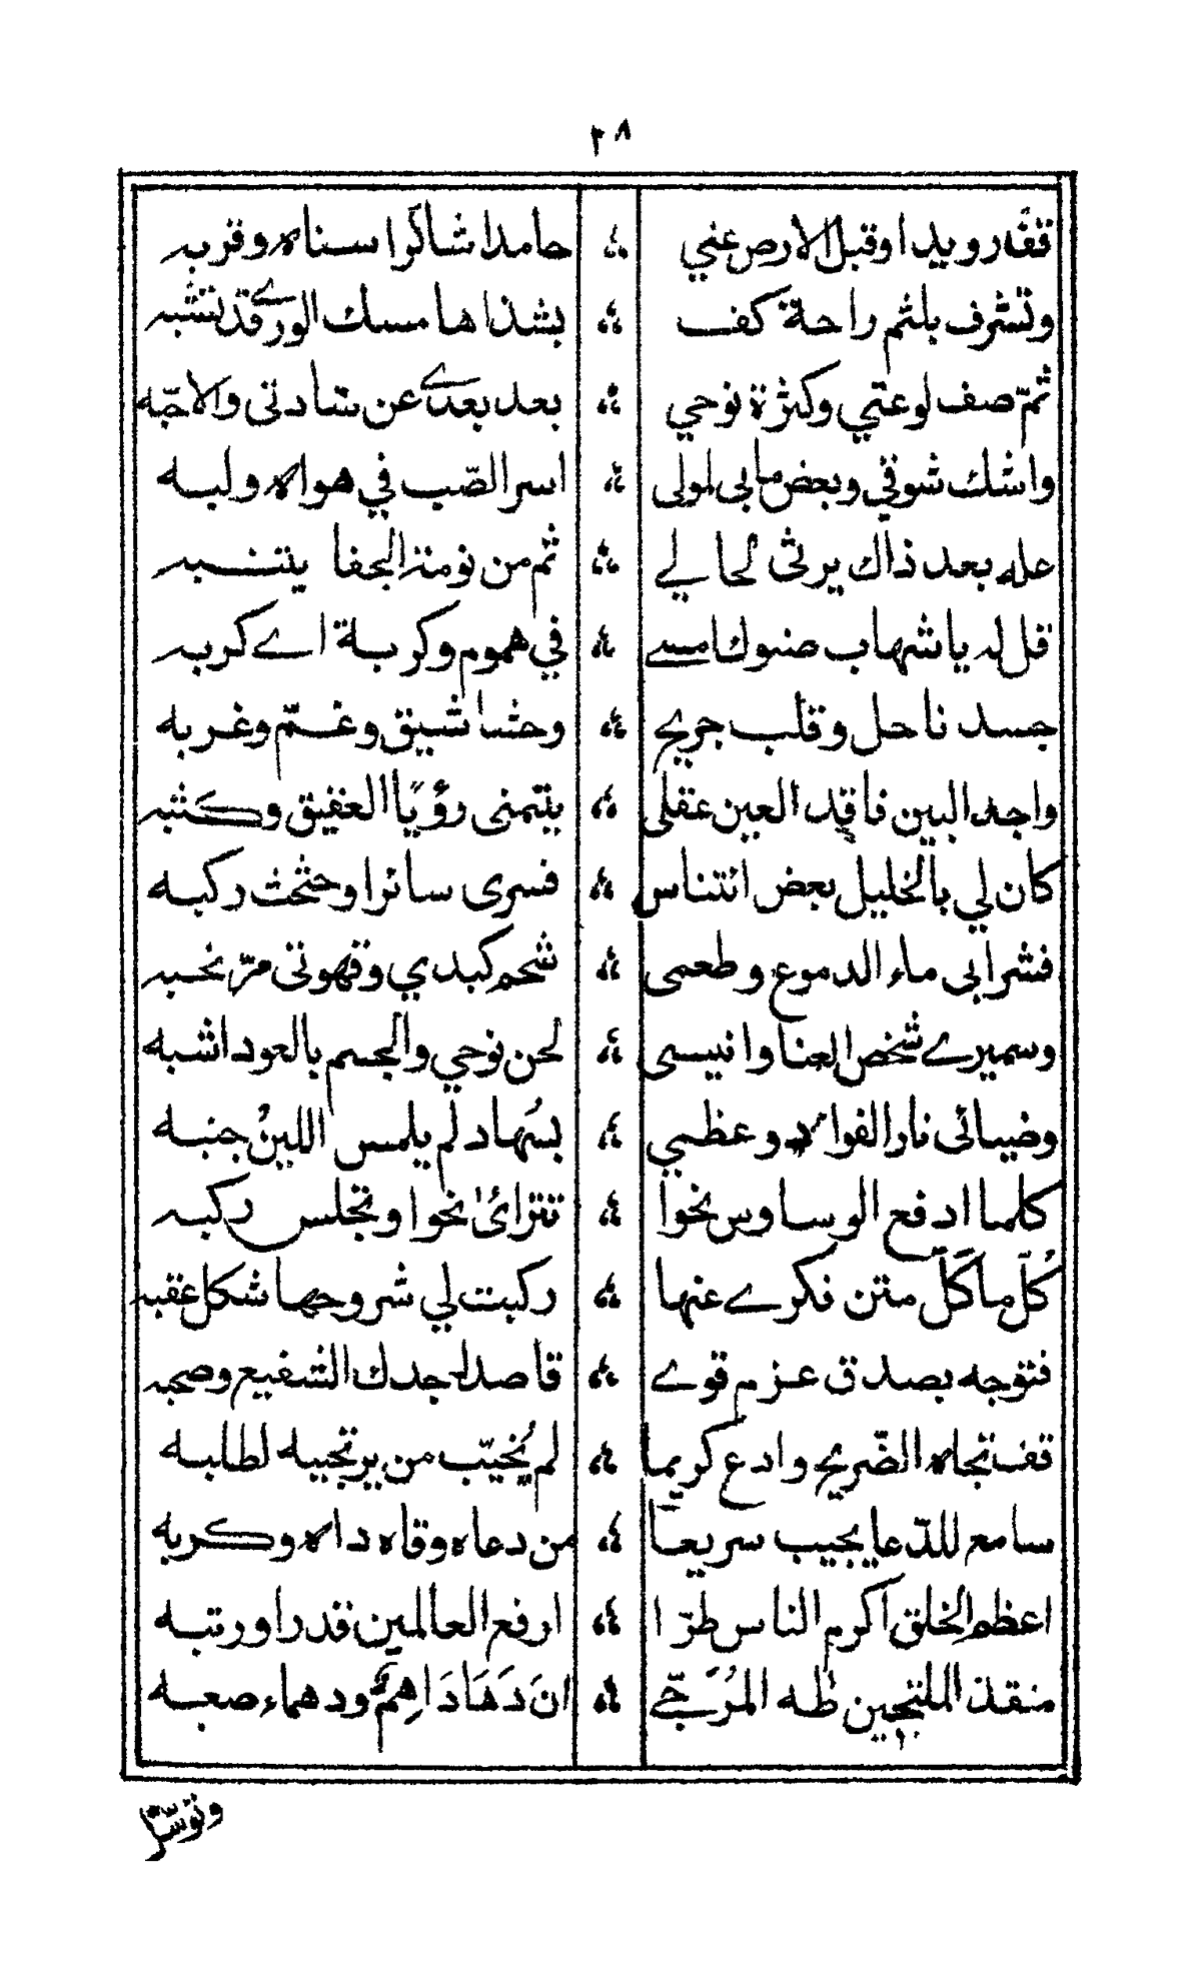 ٢٨
قفه رويدا وقبل الارض عني حامدا شاكرا سناه وقربه
وتشرف بلثم راحة كف بشذاها مسك الورے قد تشبه
ثمّ صف لوعتي وكثرة نوحي بعد بعدے عن سادتى والاحبّه
واشك شوقي وبعض ما بى لمولى اسر الصّب في هواه ولبه
عله بعد ذاك يرثى لحالے ثم من نومة الجفا يتنبه
قل له يا شهاب صنوك امسے في هموم وكربة اے كربه
جسد ناحل وقلب جريح وحشا شيق وغمّ وغربه
واجد البين فاقد العين عقلى يتمنى رؤيا العقيق وكثبه
كان لي بالخليل بعض ائتناس فسرى سائرا وحثحث ركبه
فشرابى ماء الدموع وطعمى شحم كبدي وقهوتى مرّ نحبه
وسميرے شخص العنا وانيسى لحن نوحي والجسم بالعود اشبه
وضيائى نار الفواد وعظمي بسُهاد لم يلمس اللينُ جنبه
كلما ادفع الوساوس نحوا تترائ نحوا وتجلس ركبه
كُلّ ما كَلَّ متن فكرے عنها ركبت لي شروحها شكل عقبه
فتوجه بصدق عزم قوے قاصدا جدك الشفيع وصحبه
قف تجاه الضّريح وادع كريما لم يُخيّب من يرتجيه لطلبه
سامع للدّعا يجيب سريعاً من دعاه وقاه داه وكربه
اعظم الخلق اكرم الناس طرّا ارفع العالمين قدرا ورتبه
منقذ الملتجين طٰه المُرَجّے انَ دَهَا دَاهِمٌ ودهماء صعبه